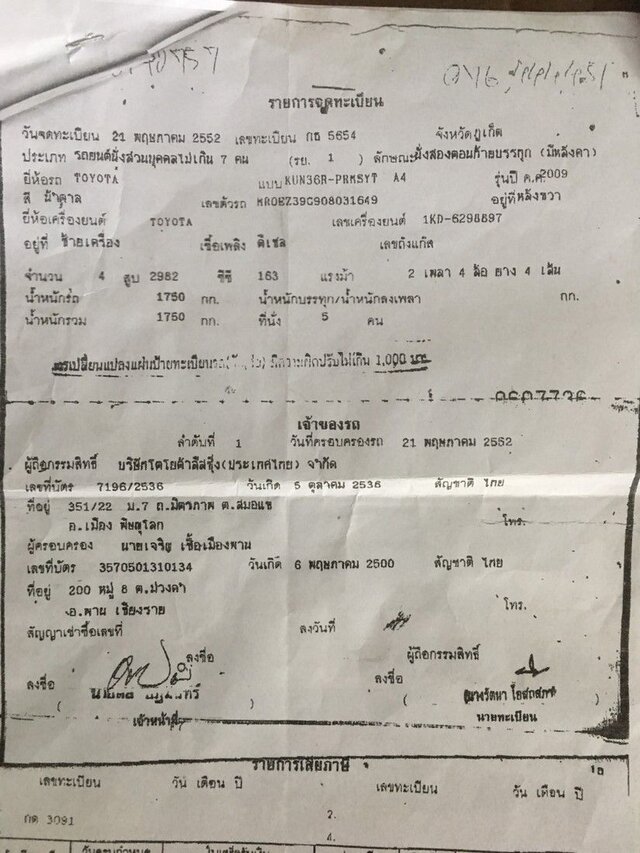 รายการจดทะเบียน
วันจดทะเบียน 21 พฤษภาคม 2552 เลขทะเบียน กธ 5654 จังหวัดภูเก็ต
ประเภท รถยนต์นั่งส่วนบุคคลไม่เกิน 7 คน (รย. 1 ) ลักษณะ นั่งสองตอนท้ายบรรทุก (มีหลังคา)
ยี่ห้อรถ TOYOTA แบบ KUN36R-PRMSYT A4 รุ่นปี ค.ศ. 2009
สี น้ำตาล เลขตัวรถ MR0EZ39G908031649 อยู่ที่ หลังขวา
ยี่ห้อเครื่องยนต์ TOYOTA เลขเครื่องยนต์ 1KD-6298897
อยู่ที่ ซ้ายเครื่อง เชื้อเพลิง ดีเซล เลขถังแก๊ส
จำนวน 4 สูบ 2982 ซีซี 163 แรงม้า 2 เพลา 4 ล้อ ยาง 4 เส้น
น้ำหนักรถ 1750 กก. น้ำหนักบรรทุก/น้ำหนักลงเพลา กก.
น้ำหนักรวม 1750 กก. ที่นั่ง 5 คน
การเปลี่ยนแปลงแผ่นป้ายทะเบียนรถ มีความผิดปรับไม่เกิน 1,000 บาท
0607726
เจ้าของรถ
ลำดับที่ 1 วันที่ครอบครองรถ 21 พฤษภาคม 2552
ผู้ถือกรรมสิทธิ์ บริษัทโตโยต้าลีสซิ่ง(ประเทศไทย) จำกัด
เลขที่บัตร 7196/2536 วันเกิด 5 ตุลาคม 2536 สัญชาติ ไทย
ที่อยู่ 351/22 ม.7 ถ.มิตรภาพ ต.สมอแข
อ.เมือง พิษณุโลก โทร.
ผู้ครอบครอง นายเจริญ เชื้อเมืองพาน
เลขที่บัตร 3570501310134 วันเกิด 6 พฤษภาคม 2500 สัญชาติ ไทย
ที่อยู่ 200 หมู่ 8 ต.ม่วงคำ โทร.
อ.พาน เชียงราย
สัญญาเช่าซื้อเลขที่ ลงวันที่
ลงชื่อ ผู้ถือกรรมสิทธิ์
ลงชื่อ ลงชื่อ
( ( นางรัตนา โอสถสภา )
เจ้าหน้าที่ นายทะเบียน
รายการเสียภาษี
เลขทะเบียน วัน เดือน ปี เลขทะเบียน วัน เดือน ปี
กต 3091 2.
4.